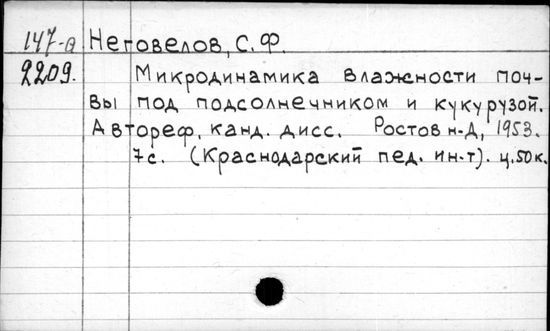 147-а Неговелов, С.Ф.
2209. Микродинамика влажности поч-
вы под подсолнечником и кукурузой.
Автореф. канд. дисс. Ростов н-Д, 1953.
7с. (Краснодарский пед. ин-т). ц.50к.